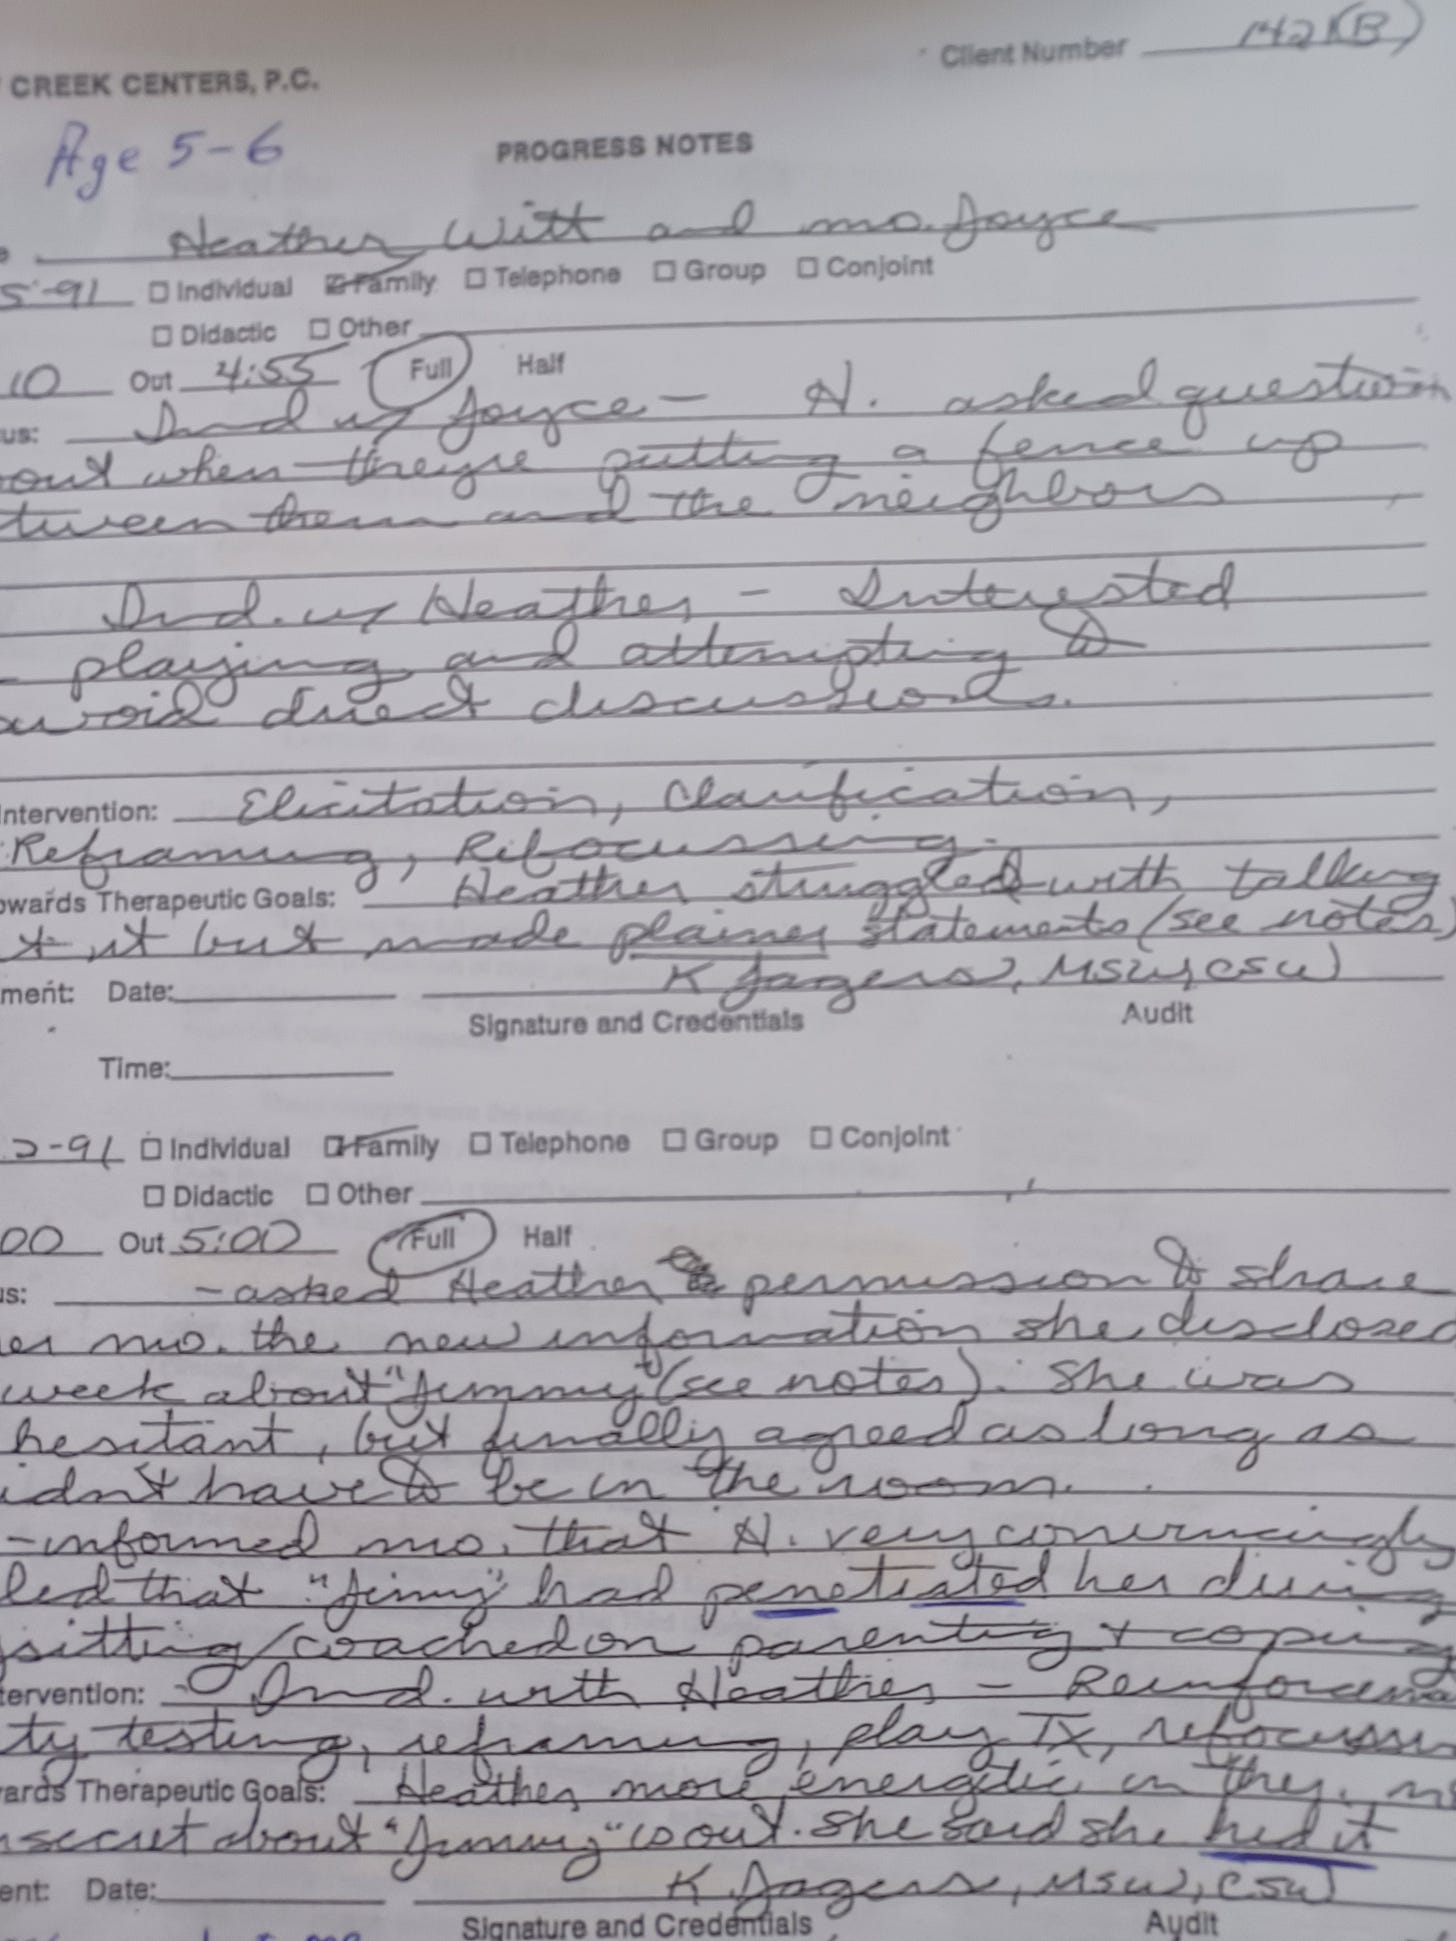 Client Number 142(B)
CREEK CENTERS, P.C.
Age 5-6
PROGRESS NOTES
Heather Witt and mo. Joyce
5-91 ☐ Individual ☑ Family ☐ Telephone ☐ Group ☐ Conjoint
☐ Didactic ☐ Other
10 Out 4:55 Full Half
us: Ind w/ Joyce - H. asked question
out when they're putting a fence up
tween them and the neighbors
Ind. w/ Heather - Interested
playing and attempting to
avoid direct discussions.
Intervention: Elicitation, Clarification,
Reframing, Refocussing.
owards Therapeutic Goals: Heather struggled with talking
t it but made plainer statements (see notes)
ment: Date: K Jagers, MSW, CSW
Signature and Credentials Audit
Time:
2-91 ☐ Individual ☑ Family ☐ Telephone ☐ Group ☐ Conjoint
☐ Didactic ☐ Other
00 Out 5:00 Full Half
us: - asked Heather permission to share
er mo. the new information she disclosed
week about "Jimmy" (see notes). She was
hesitant, but finally agreed as long as
idn't have to be in the room.
- informed mo. that H. very convincingly
led that "Jimmy" had penetrated her during
sitting/coached on parenting + coping
tervention: - Ind. with Heather - Reinforcem
ty testing, reframing, play Tx, refocussin
ards Therapeutic Goals: Heather more energetic in
secret about "Jimmy" is out. She said she hid it
ent: Date: K. Jagers, MSW, CSW
Signature and Credentials Audit